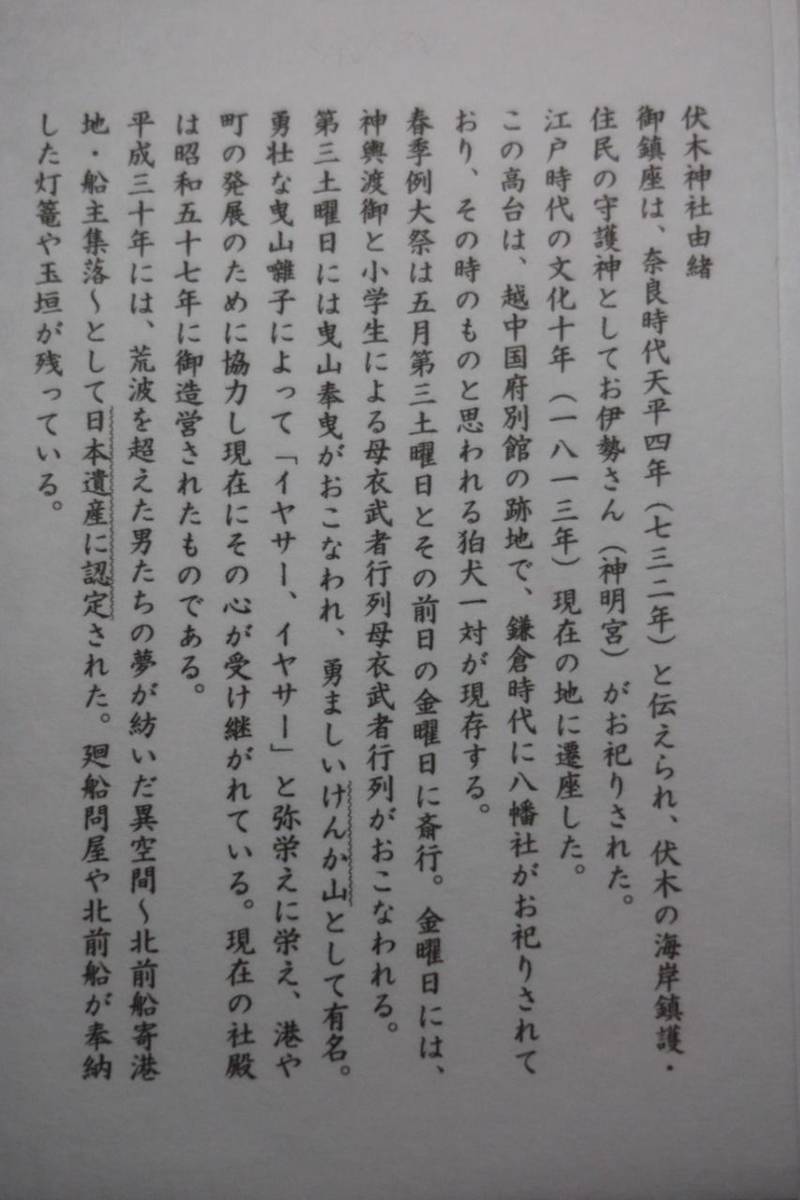 伏木神社由緒
御鎮座は、奈良時代天平四年（七三二年）と伝えられ、伏木の海岸鎮護・
住民の守護神としてお伊勢さん（神明宮）がお祀りされた。
江戸時代の文化十年（一八一三年）現在の地に遷座した。
この高台は、越中国府別館の跡地で、鎌倉時代に八幡社がお祀りされて
おり、その時のものと思われる狛犬一対が現存する。
春季例大祭は五月第三土曜日とその前日の金曜日に斎行。金曜日には、
神輿渡御と小学生による母衣武者行列母衣武者行列がおこなわれる。
第三土曜日には曳山奉曳がおこなわれ、勇ましいけんか山として有名。
勇壮な曳山囃子によって「イヤサー、イヤサー」と弥栄えに栄え、港や
町の発展のために協力し現在にその心が受け継がれている。現在の社殿
は昭和五十七年に御造営されたものである。
平成三十年には、荒波を超えた男たちの夢が紡いだ異空間～北前船寄港
地・船主集落～として日本遺産に認定された。廻船問屋や北前船が奉納
した灯篭や玉垣が残っている。